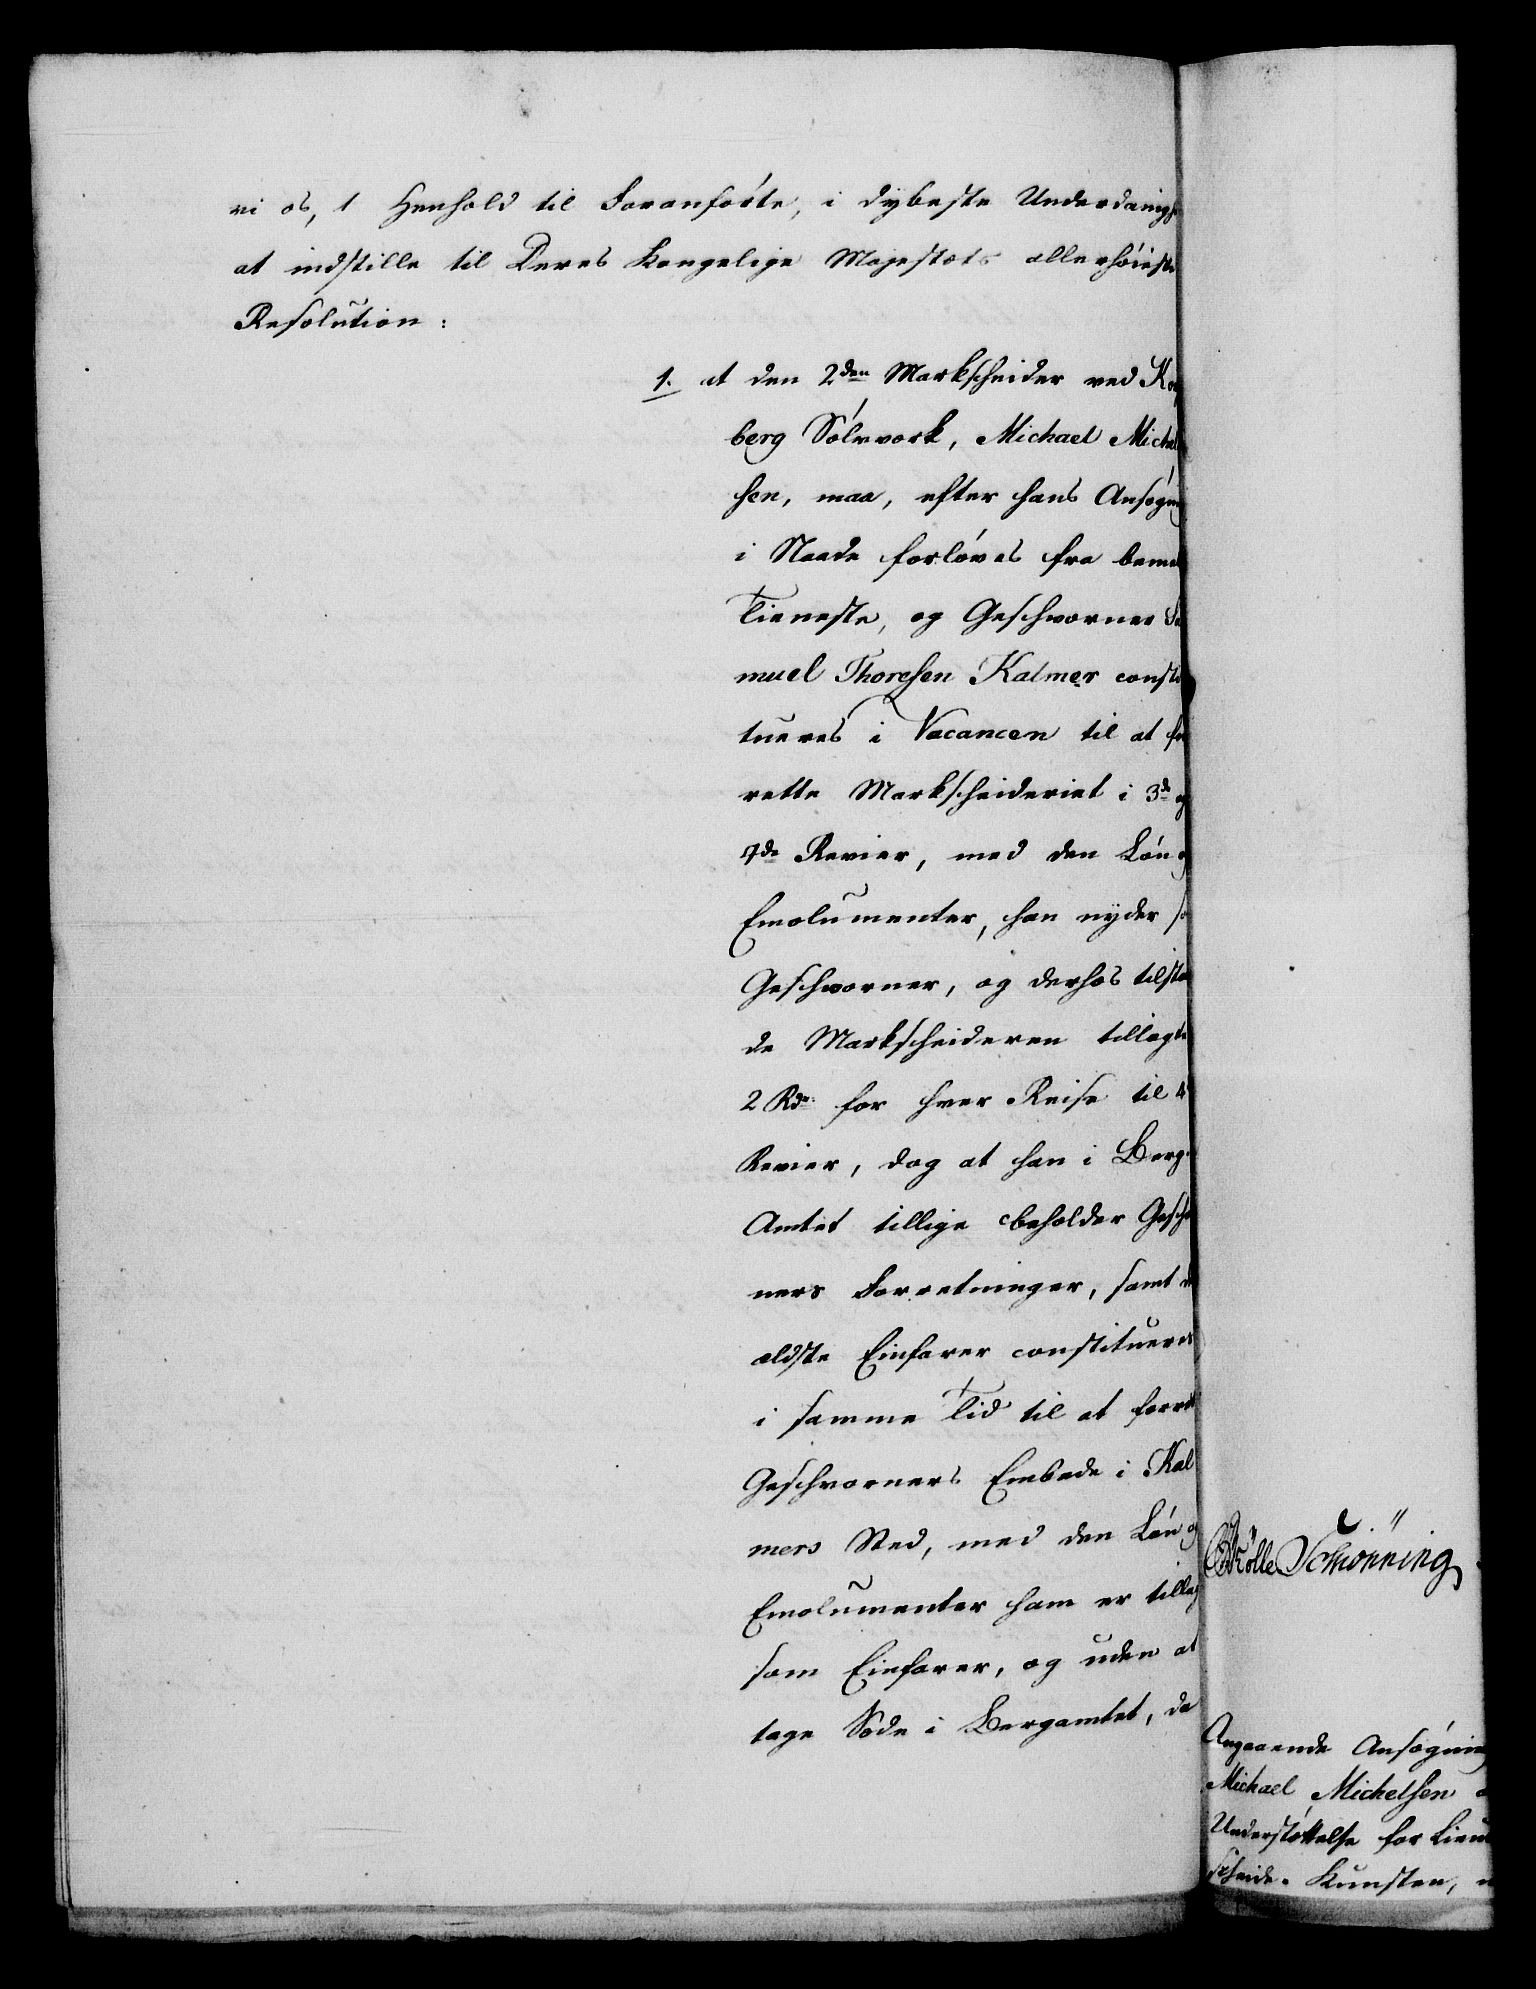 vi os, i Henhold til Foranførte, i dybeste Underdanigh
at indstille til Deres Kongelige Majestæts allerhøieste
Resolution:
1. at den 2den Markscheider ved Kong
berg Sølvværk, Michael Michel
sen, maa, efter hans Ansøgning
i Naade forløves fra bemel
Tieneste, og Geschworner Sa
muel Thoresen Kalmer consti
tueres i Vacancen til at for
rette Markscheideriet i 3de og
4de Revier, med den Løn og
Emolumenter, han nyder so
Geschworner, og derhos tilstaa
de Markscheideren tillagte
2 Rdr. for hver Reise til 4
Revier, dog at han i Berg-
Amtet tillige beholder Geschw
ners Forretninger, samt at
ældste Einfarer constitueres
i samme Tid til at forret
Geschworners Embede i Kal
mers Sted, med den Løn og
Emolumenter ham er tillag
som Einfarer, og uden at
tage Sæde i Bergamtet, da
Kølle Schiönning
Angaaende Ansøgning
Michael Michelsen
Understøttelse for Lieut
scheide-Kunsten,